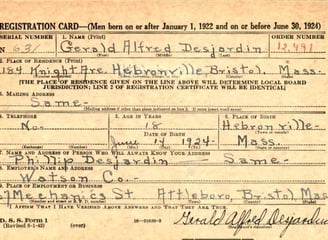 REGISTRATION CARD—(Men born on or after January 1, 1922 and on or before June 30, 1924)
SERIAL NUMBER 1. NAME (Print) ORDER NUMBER
N 631 Gerald Alfred Desjardin 12,491
2. PLACE OF RESIDENCE (Print)
184 Knight Ave. Hebronville, Bristol, Mass.
(THE PLACE OF RESIDENCE GIVEN ON THE LINE ABOVE WILL DETERMINE LOCAL BOARD
JURISDICTION; LINE 2 OF REGISTRATION CERTIFICATE WILL BE IDENTICAL)
3. MAILING ADDRESS
Same
4. TELEPHONE 5. AGE IN YEARS 6. PLACE OF BIRTH
18 Hebronville
No. DATE OF BIRTH
June 14 1924 Mass.
7. NAME AND ADDRESS OF PERSON WHO WILL ALWAYS KNOW YOUR ADDRESS
Phillip Desjardin Same
8. EMPLOYER'S NAME AND ADDRESS
Watson Co.
9. PLACE OF EMPLOYMENT OR BUSINESS
Mechanic St Attleboro, Bristol, Mass
I AFFIRM THAT I HAVE VERIFIED ABOVE ANSWERS AND THAT THEY ARE TRUE.
D. S. S. Form 1
(Revised 6-1-42) Gerald Alfred Desjardin